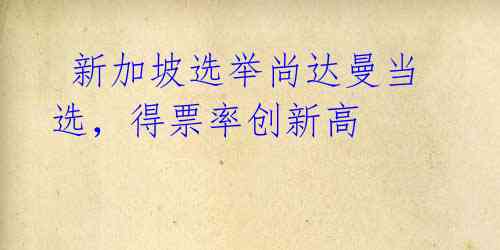 新加坡选举尚达曼当
选，得票率创新高